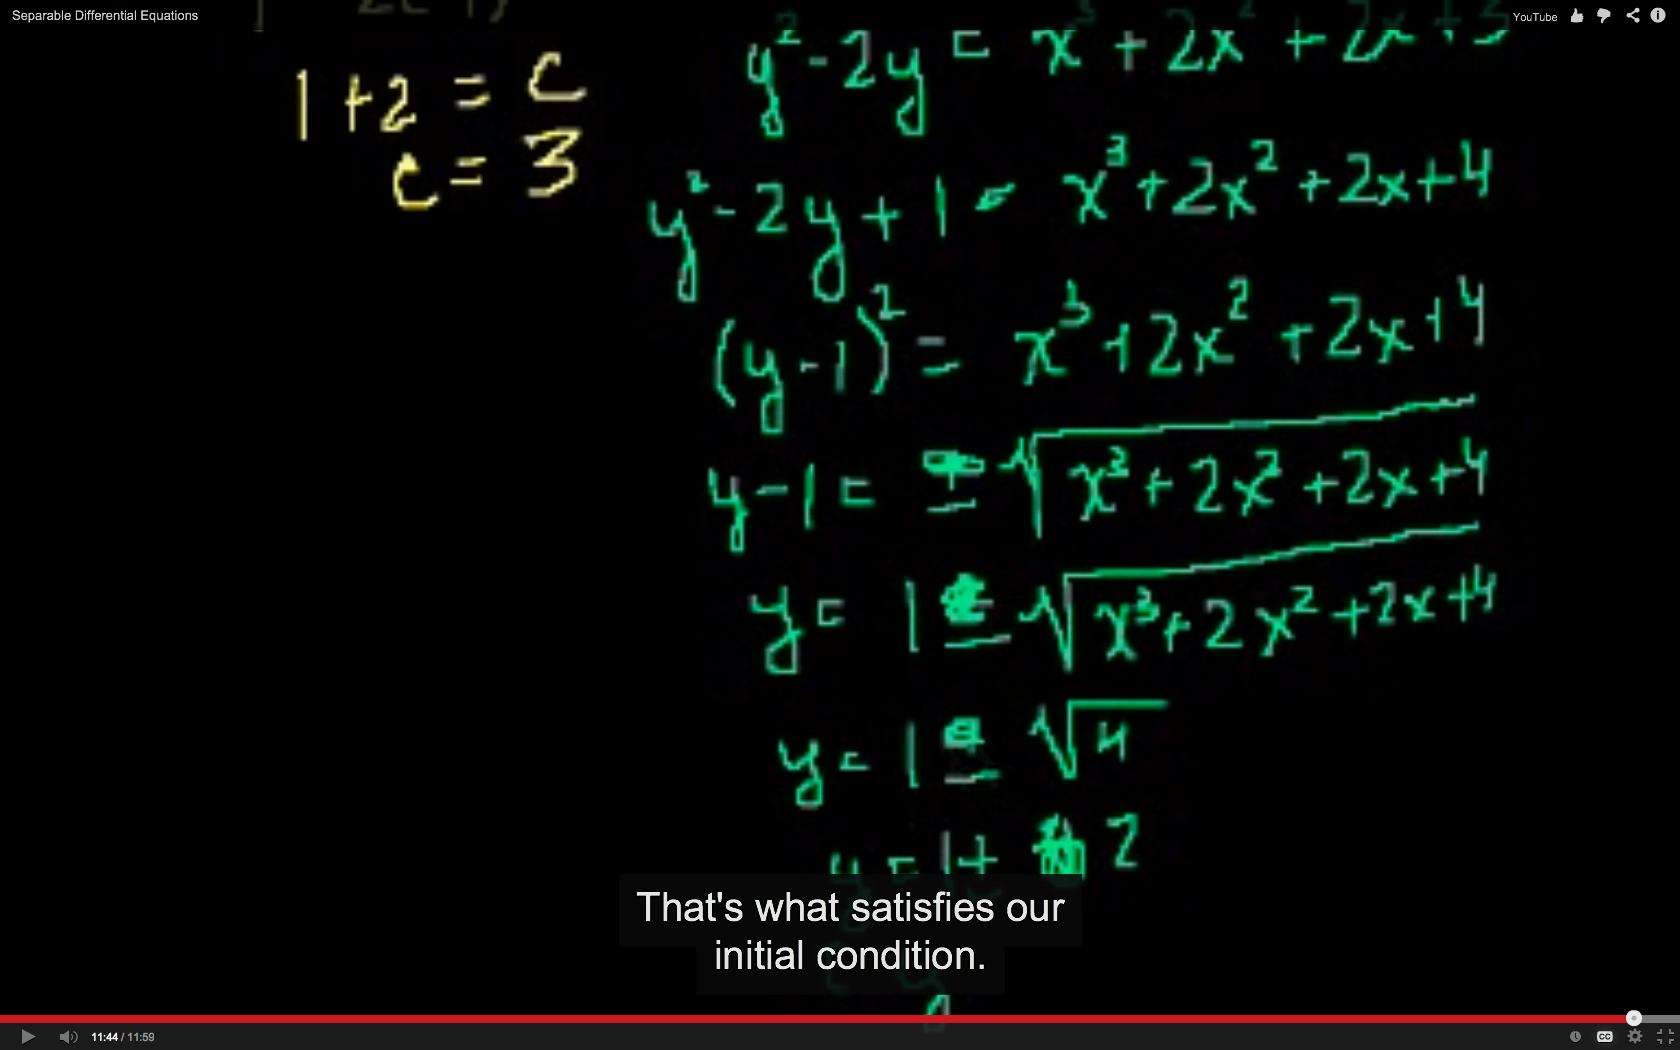 Separable Differential Equations
YouTube
1+2 = c
c = 3
y² - 2y = x³ + 2x² + 2x + 3
y² - 2y + 1 = x³ + 2x² + 2x + 4
(y - 1)² = x³ + 2x² + 2x + 4
y - 1 = ± √x³ + 2x² + 2x + 4
y = 1 ± √x³ + 2x² + 2x + 4
y = 1 ± √4
y = 1 ± 2
That's what satisfies our
initial condition.
11:44 / 11:59
CC